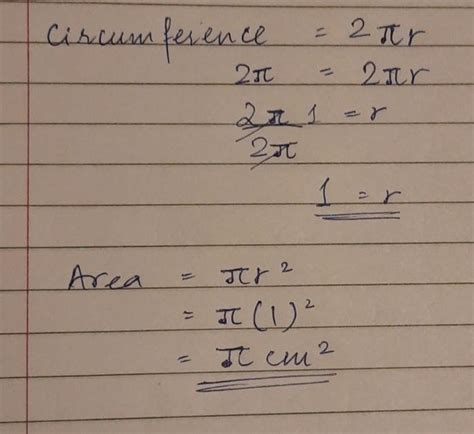 Circumference = 2πr
2π = 2πr
2π 1 = r
2π
1 = r
Area = πr²
= π(1)²
= π cm²